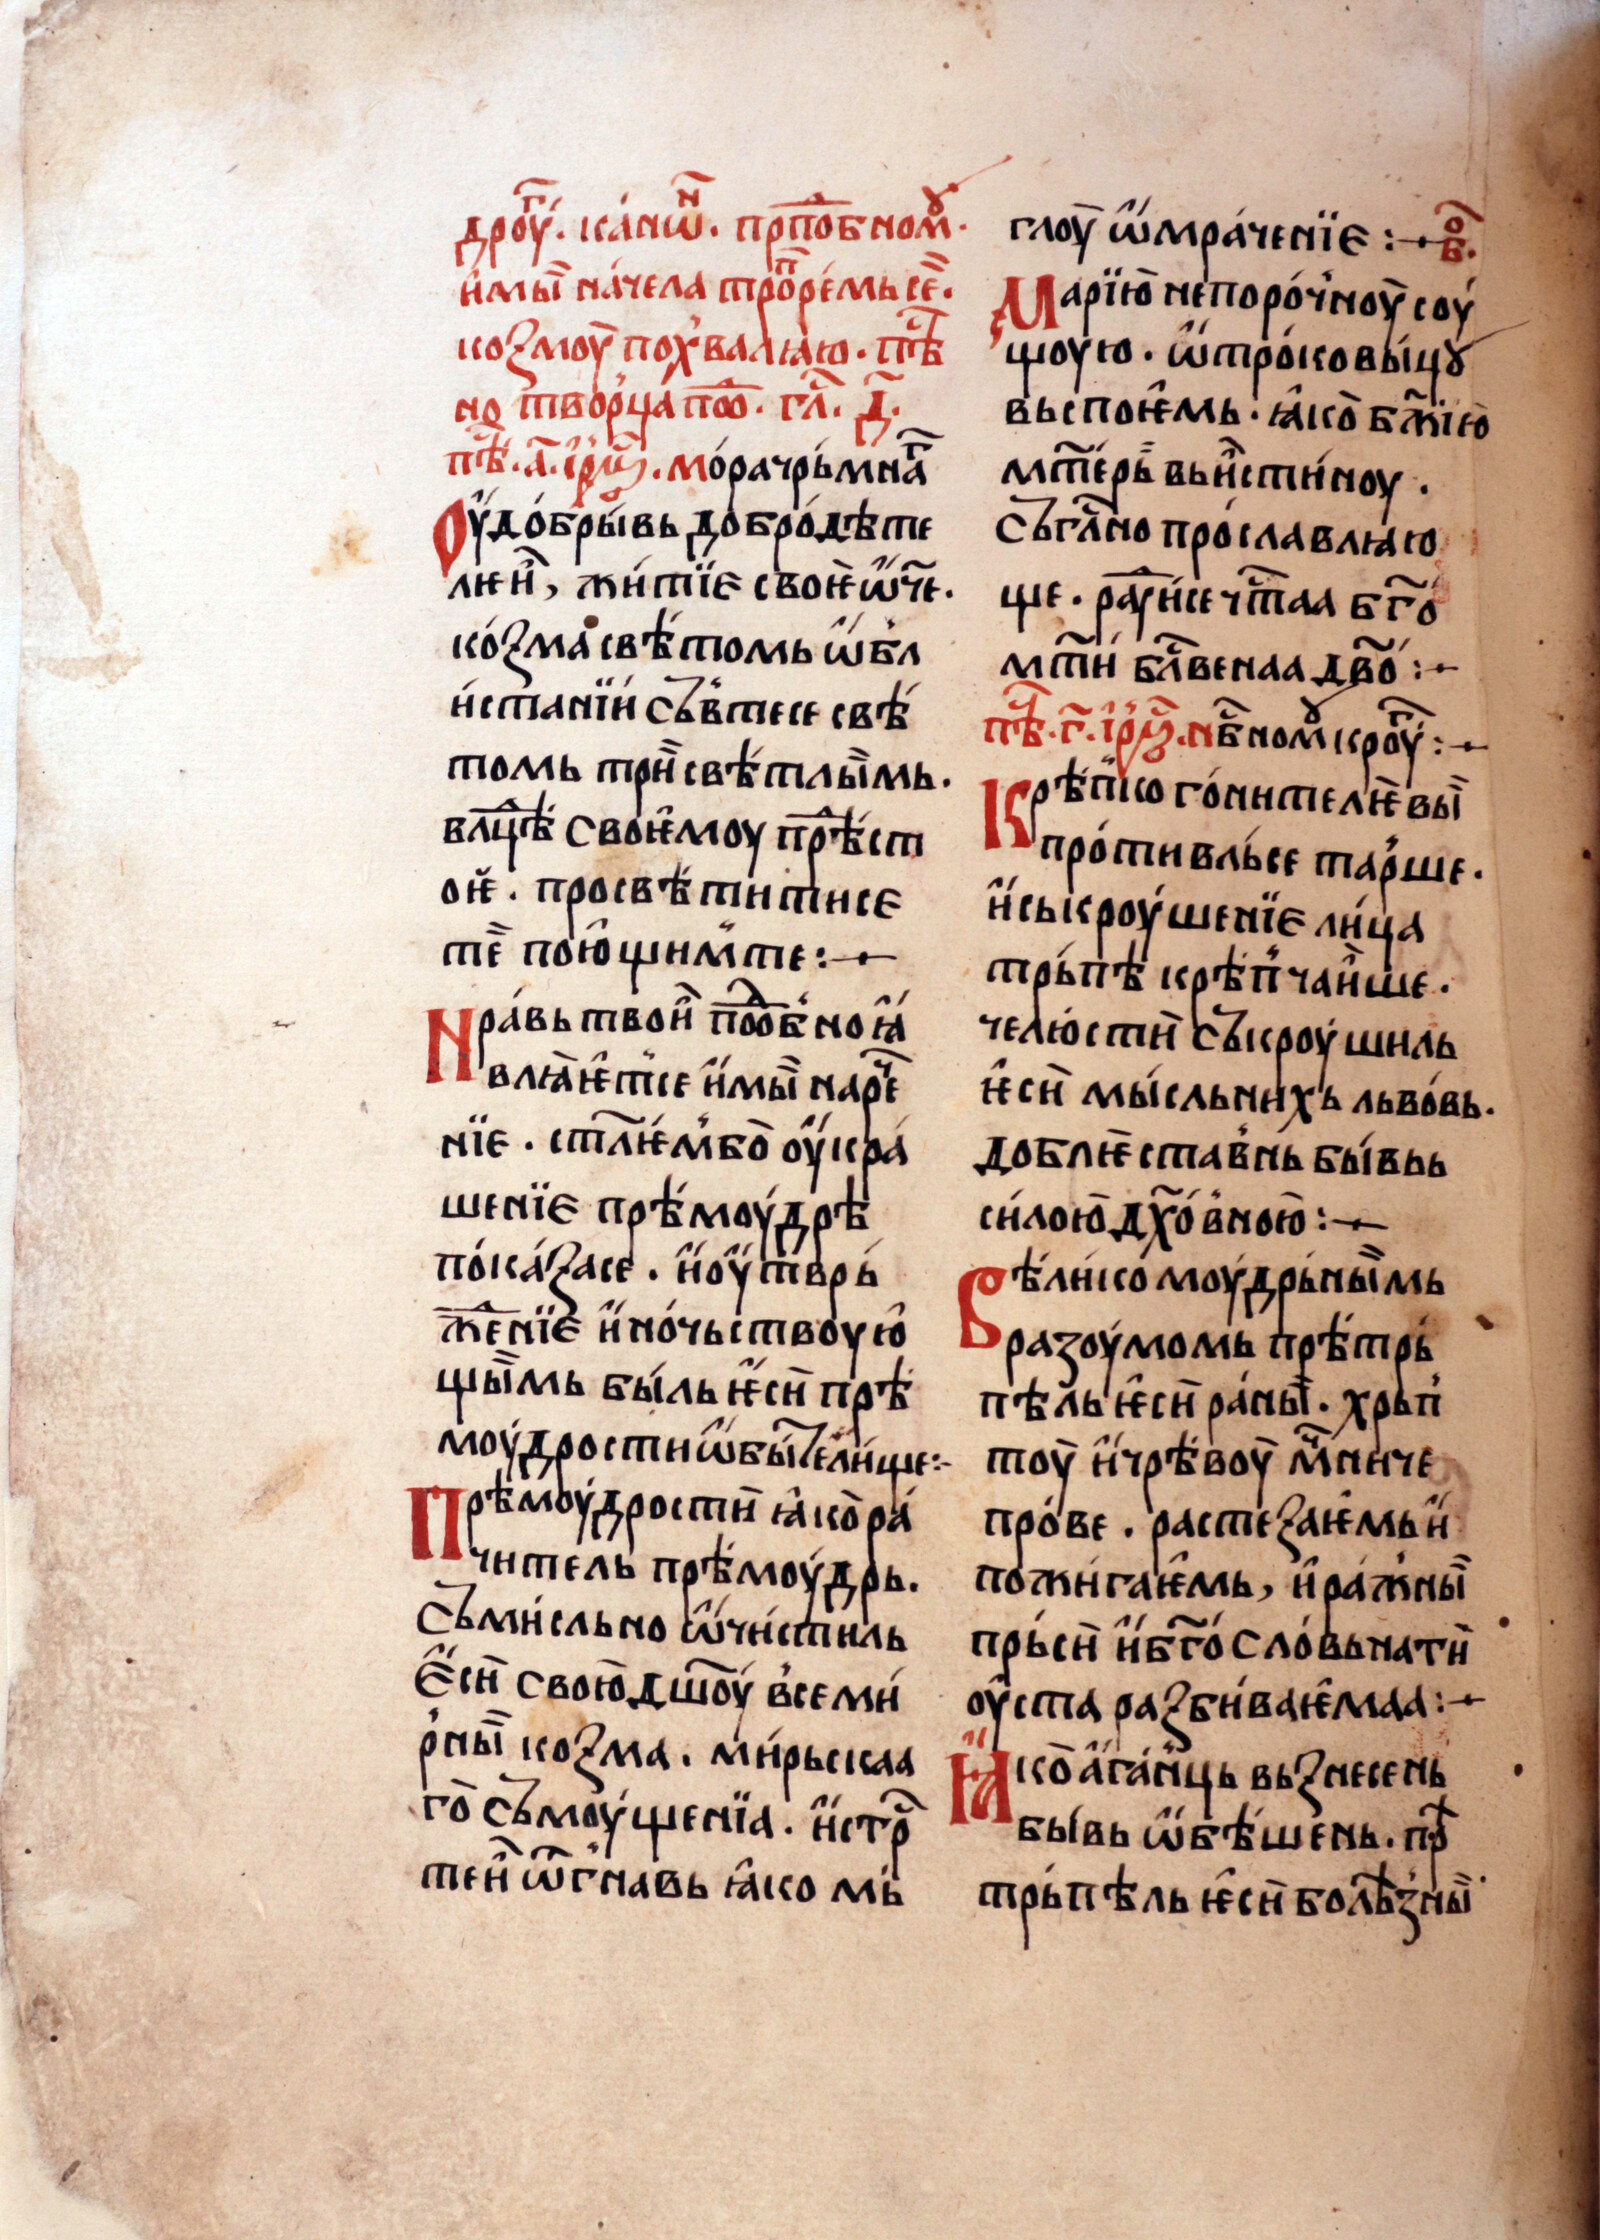 дроуⷢ҇. ка́нѡⷩ҇. прпⷣобномꙋ̀.
и҆мыⷭ҇ на́чела трⷪпре́мь сеⷭ҇.
козмоу̀ пох҆валꙗю. пѣⷭ҇
но твор҆ца́ поѡⷣ. глⷭ҇. д҃.
пѣⷭ҇. а҃. і҆рмⷭ҇. мо́рачрь́мнаⷢ҇
Оу҆до́бры́вь добро́дѣте
лѥи҆, жи́тїе своѥ҆ ѡ҆ч҃е.
ко́ꙁма свѣ́томь ѡ҆б҆л
и́станїи́ съв҆тесе свѣ́
томь три҆свѣ́тлыимь.
влⷣцѣ своѥ҆моу прⷭ҇ѣст
ои҆. просвѣ́титисе
теⷠ҇ пою҆щим҆те :~
Нра́вь твои҆ поⷣоб҆но ꙗ҆́
влꙗ̀ѥ҆т҆се и҆мыⷭ҇ нареⷱ҇
нїе. ст҃лѥм҆бо̀ оу҆кра́
шенїе прѣ́моу́дрѣ
по́ка́ꙁасе. и҆оу҆тврь́
жⷣенїе и҆но́чьствоую҆
щыимь бы́ль ѥ҆си҆ прѣ
моу́дрости ѡ҆бы́тели́ще :~
Прѣмоу́дрости҆ ꙗ҆ко̀ ра́
чи́тель прѣ́моу́дрь.
Съми́сльно ѡ҆чи́стиль
е҆си҆ свою̀ дш҃оу́ в҆семи́
р҆ныи ко́ꙁма. ми́рьскаа
го̀ съмоу́щенїа. и҆стрⷭ҇
теи҆ ѿг҆навь ꙗ҆ко мь́
глоу̀ ѡ҆мра́ченїе :~ боⷢ҇.
Марїю̀ непоро́ч҆ноу̀ соу́
щоую. ѡ҆тро́ковы́цꙋ
вьспоѥ҆мь. ꙗ҆ко̀ бж҃їю̀
мт҃е́рь̀ вьи҆сти́ноу.
Съгла҃но про́славлꙗ́ю
ще. раⷣуи́се чⷭ҇таа бг҃о́
мт҃и бл҃венаа дв҃о́ :~
пѣⷭ҇. г҃. і҆рмⷭ҇. нбⷭ҇номꙋ̀ кроуⷢ҇ :~
Крѣ́п҆ко го́нителѥ҆выи
про́тивль́се тар҆ше.
и҆ськроу́шенїе ли́ца
трьпѣ крѣп҆чаи҆ше.
челю́сти҆ съкроу́шиль
ѥ҆си҆ мы́сльних̾ львовь.
доблѥ҆став҆нь бы́вьь
си́лою̀ дх҃о́в҆ною̀ :~
Вѣли́ко моу́дрьныимь
разоу́момь прѣ́трь́
пѣль ѥ҆си҆ ра́ныи. хрьп҆
тоу̀ и҆чрѣ́воу̀ мⷱ҇ниче
про́ве. растеꙁаѥ҆мь и҆
пожи́гаѥ҆мь, и҆ра́ж҆ныи
прь́си҆ и҆бг҃о́сло́вьнати҆
оу҆ста раꙁби́ваѥ҆маа :~
Ꙗ҆ко̀ а҆га́н҆ць вьꙁнесень
бы́вь ѡ҆бѣ́шень. прⷭ҇ѣ
трьпѣль ѥ҆си҆ болѣз҆ныи